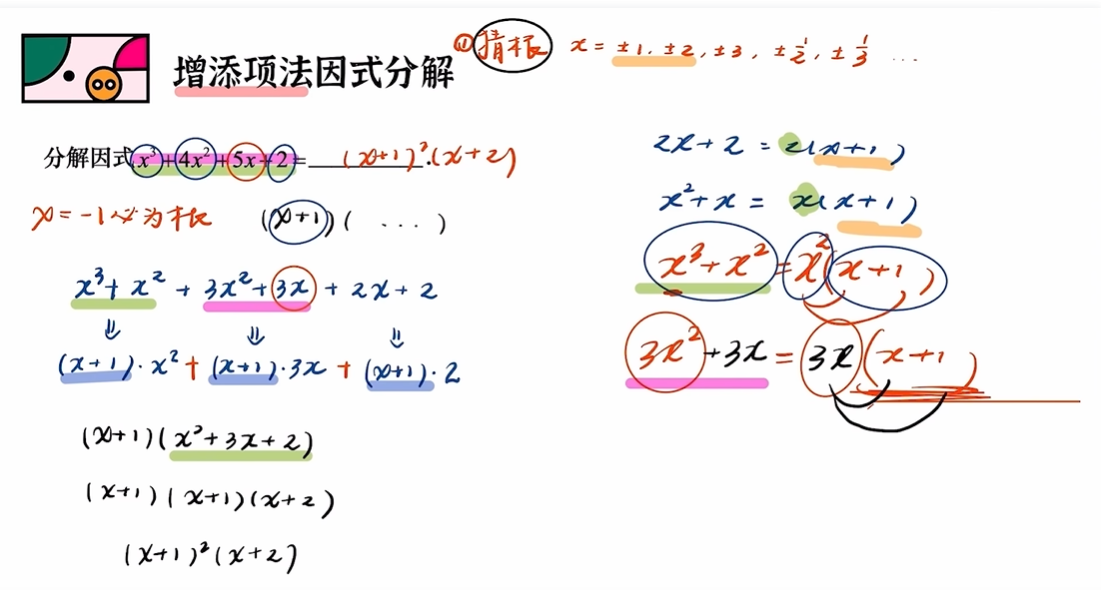 增添项法因式分解
① 猜根 x = ±1, ±2, ±3, ±1/2, ±1/3 ...
分解因式x³+4x²+5x+2=______. (x+1)²(x+2)
x = -1 必为根 (x+1)( ... )
x³+ x² + 3x²+3x + 2x+2
⇓ ⇓ ⇓
(x+1)·x² + (x+1)·3x + (x+1)·2
(x+1)(x²+3x+2)
(x+1)(x+1)(x+2)
(x+1)²(x+2)
2x+2 = 2(x+1)
x²+x = x(x+1)
x³+x² = x²(x+1)
3x²+3x = 3x(x+1)